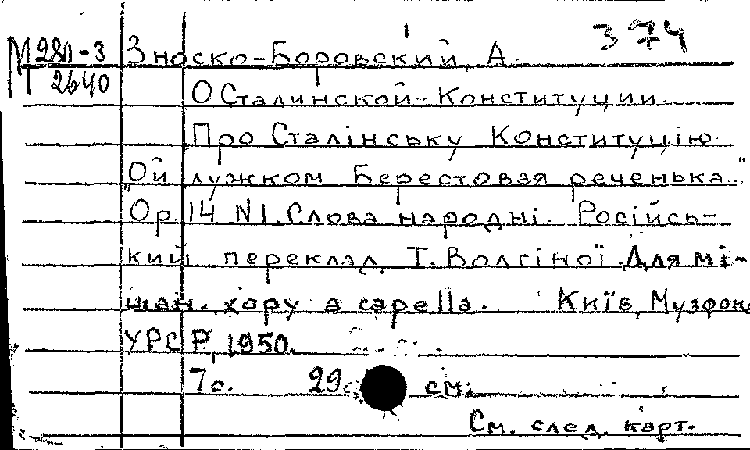 374
М 980-3 Зноско-Боровский, А.
2640
О Сталинской Конституции.
Про Сталінську Конституцію.
"Ой лужком Берестовая реченька..."
Ор. 14 N1. Слова народні. Російсь-
кий переклад Т. Волгіної. Для мі-
шан. хору a capella. Київ, Музфонд
УРСР, 1950.
7с. 29 см.
См. след. карт.